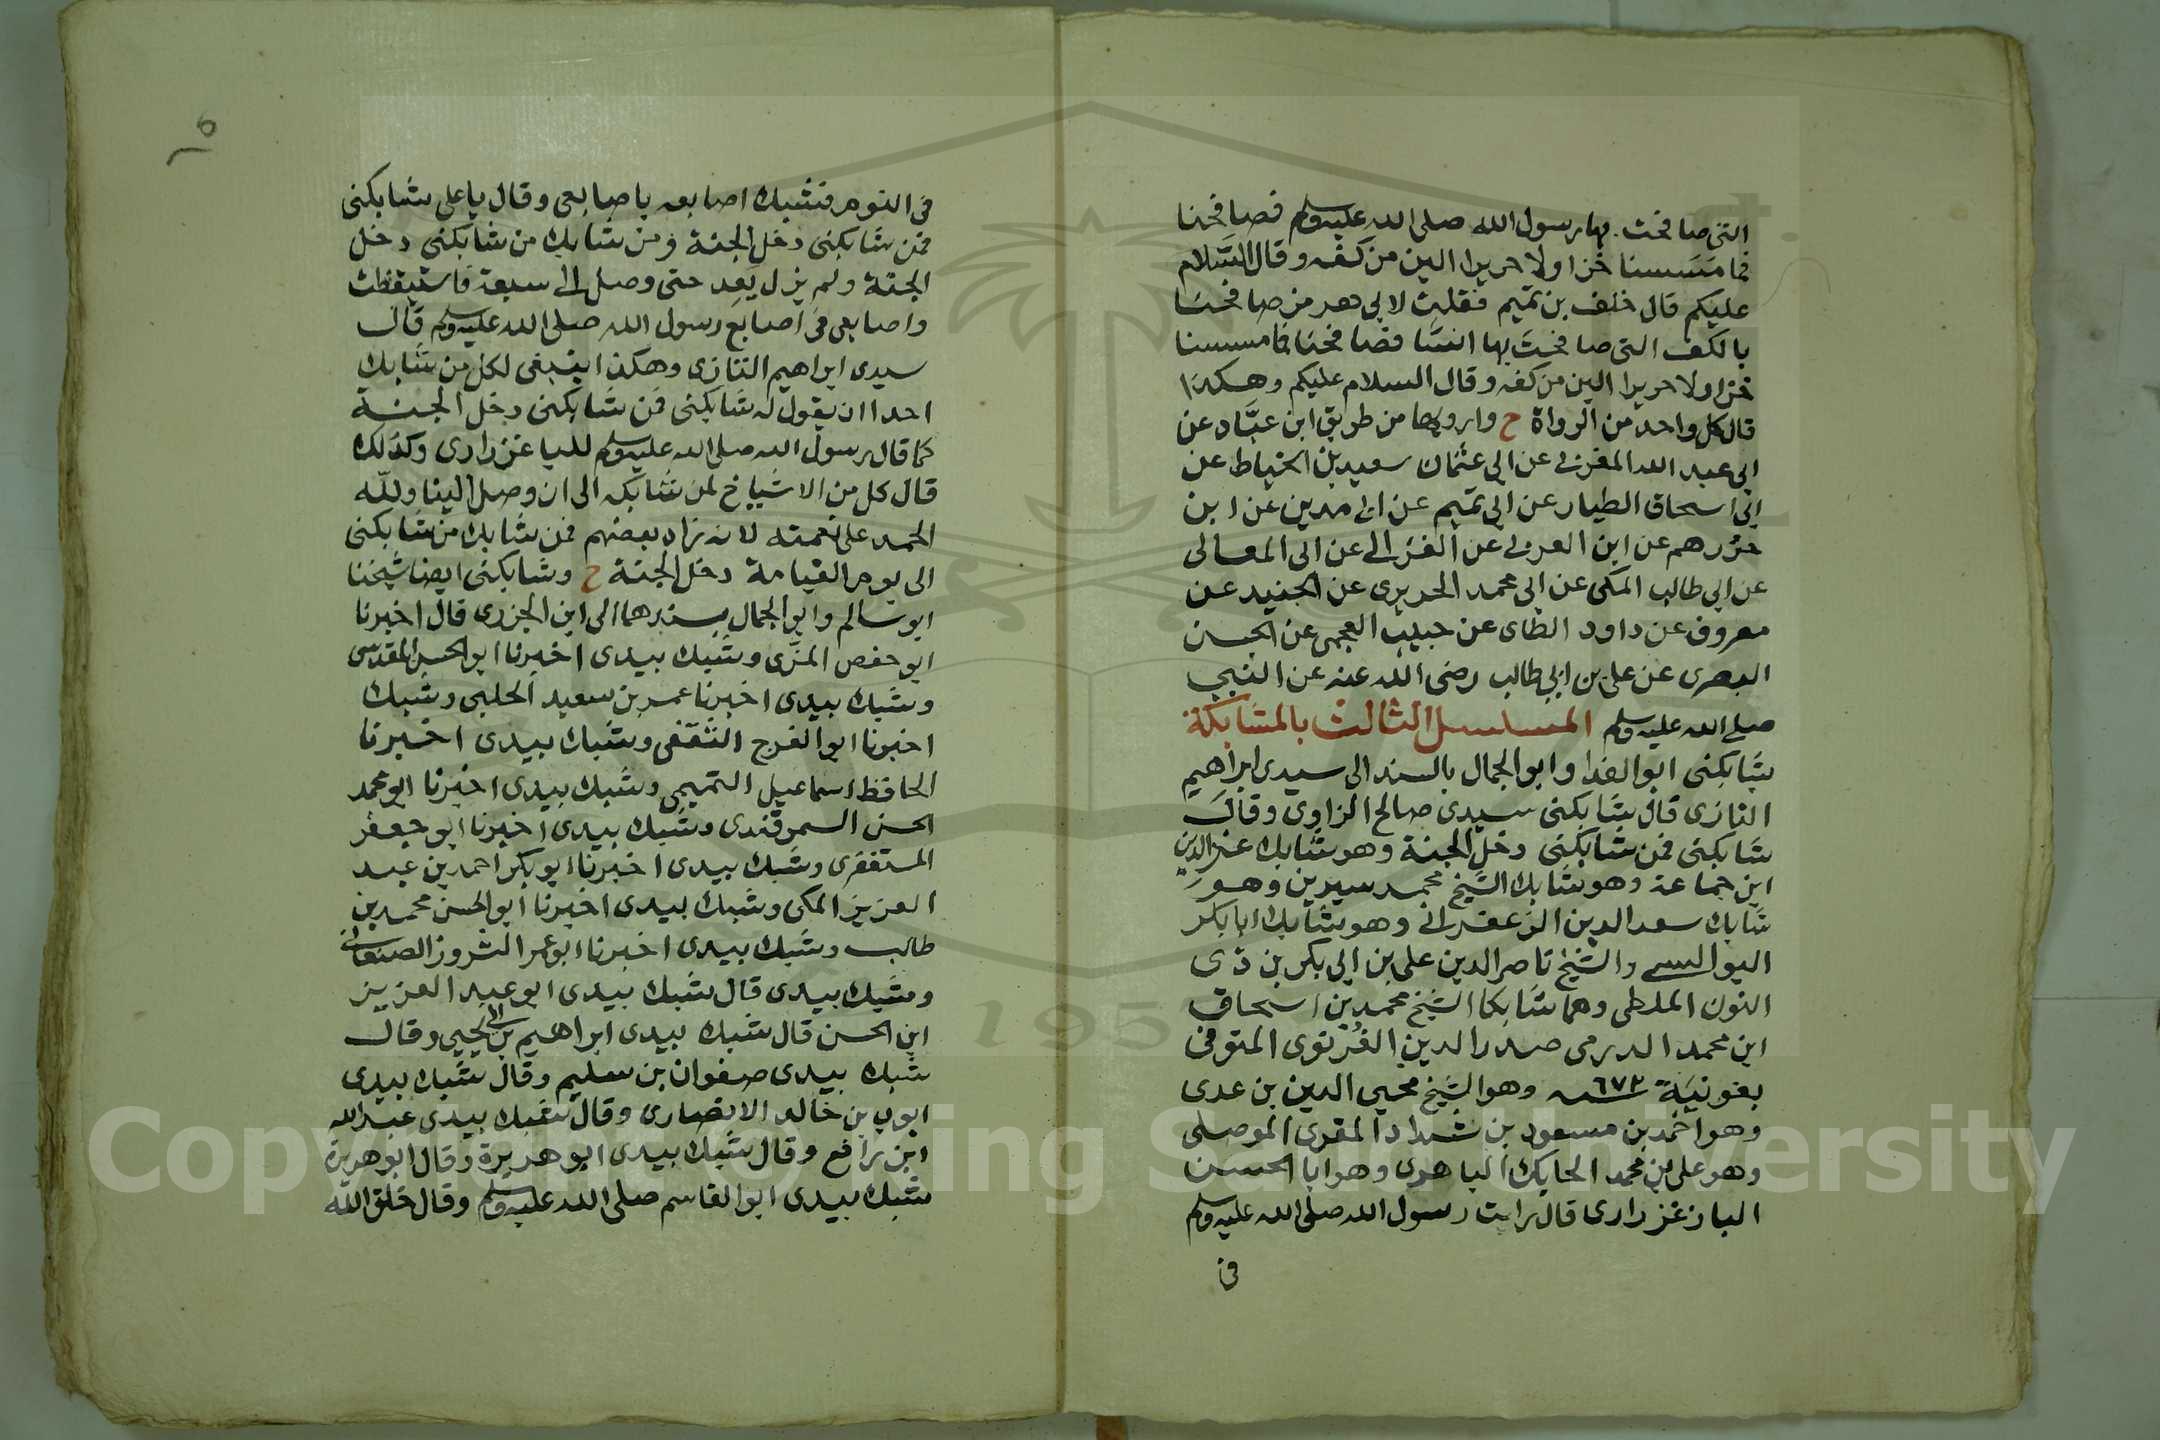 التى صافحت بها رسول الله صلى الله عليه وسلم فصافحنا
فما مسسنا خزا ولا حريرا الين من كفه وقال السلام
عليكم قال خلف بن تميم فقلت لابى هرمز صافحنا
بالكف التى صافحت بها انسا فصافحنا فما مسسنا
خزا ولا حريرا الين من كفه وقال السلام عليكم وهكذا
قال كل واحد من الرواة ح وارويها من طريق ابن عباد عن
ابى عبد الله المقرى عن ابى عثمان سعيد بن الخياط عن
ابى اسحاق الطيار عن ابى تميم عن ابى مدين عن ابن
حرزهم عن ابن العربى عن الغزالى عن ابى المعالى
عن ابى طالب المكى عن ابى محمد الحريرى عن الجنيد عن
معروف عن داود الطاى عن حبيب العجمى عن الحسن
البصرى عن على بن ابى طالب رضى الله عنه عن النبى
صلى الله عليه وسلم المسلسل الثالث بالمشابكة
شابكنى ابو الفدا وابو الجمال بالسند الى سيدى ابراهيم
التازى قال شابكنى سيدى صالح الزاوى وقال
شابكنى فمن شابكنى دخل الجنة وهو شابك عز الدين
ابن جماعة وهو شابك الشيخ محمد سيرين وهو
شابك سعد الدين الزعفرانى وهو شابك ابا بكر
السيواسى والشيخ ناصر الدين على بن ابى بكر بن ذى
النون الملطى وهما شابكا الشيخ محمد بن اسحاق
ابن محمد الدرمى صدر الدين القُزنوى المتوفى
بقونية سنة ٦٧٣ وهو الشيخ محيي الدين بن عدى
وهو احمد بن مسعود بن شداد المقرى الموصلى
وهو على بن محمد الحايك الباهرى وهو ابا الحسن
الباز غزرارى قال رايت رسول الله صلى الله عليه وسلم
فى
فى النوم فشبك اصابعه باصابعى وقال يا على شابكنى
فمن شابكنى دخل الجنة ومن شابك من شابكنى دخل
الجنة ولم يزل يَعِد حتى وصل الى سبعة فاستيقظت
واصابعى فى اصابع رسول الله صلى الله عليه وسلم قال
سيدى ابراهيم التازى وهكذا ينبغى لكل من شابك
احدا ان يقول له شابكنى فمن شابكنى دخل الجنة
كما قال رسول الله صلى الله عليه وسلم للباغزرارى وكذلك
قال كل من الاشياخ لمن شابكه الى ان وصل الينا ولله
الحمد على نعمته لانه زاد بعضهم فمن شابك من شابكنى
الى يوم القيامة دخل الجنة ح وشابكنى ايضا شيخنا
ابو سالم وابو الجمال بسندهما الى ابن الجزرى قال اخبرنا
ابو حفص المزّى وشبك بيدى اخبرنا ابو الحسن المقدسى
وشبك بيدى اخبرنا عمر بن سعيد الحلبى وشبك
اخبرنا ابو الفرج الثقفى وشبك بيدى اخبرنا
الحافظ اسماعيل التميمى وشبك بيدى اخبرنا ابو محمد
الحسن السمرقندى وشبك بيدى اخبرنا ابو جعفر
المستغفرى وشبك بيدى اخبرنا ابو بكر احمد بن عبد
العزيز المكى وشبك بيدى اخبرنا ابو الحسن محمد بن
طالب وشبك بيدى اخبرنا ابو عمر الشروز الصنعانى
وشبك بيدى قال شبك بيدى ابو عبد العزيز
ابن الحسن قال شبك بيدى ابراهيم بن ابى يحيى وقال
شبك بيدى صفوان بن سليم وقال شبك بيدى
ايوب بن خالد الانصارى وقال شبك بيدى عبد الله
ابن رافع وقال شبك بيدى ابو هريرة وقال ابو هريرة
شبك بيدى ابو القاسم صلى الله عليه وسلم وقال خلق الله
Copyright © King Saud University
195